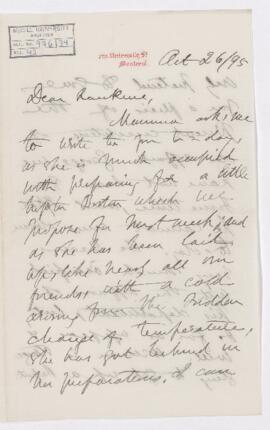 McGILL UNIVERSITY
ARCHIVES
ACC. NO. 976/34
REF. 43
University St
Montreal.
Oct 26/95
Dear Rankine,
Mamma asks me
to write to you to-day,
as she is much occupied
with preparing for a little
trip to Boston which we
propose for next week, and
as she has been laid
up, like nearly all our
friends, with a cold
arising from the sudden
change of temperature,
she has got behind in
her preparations. I can